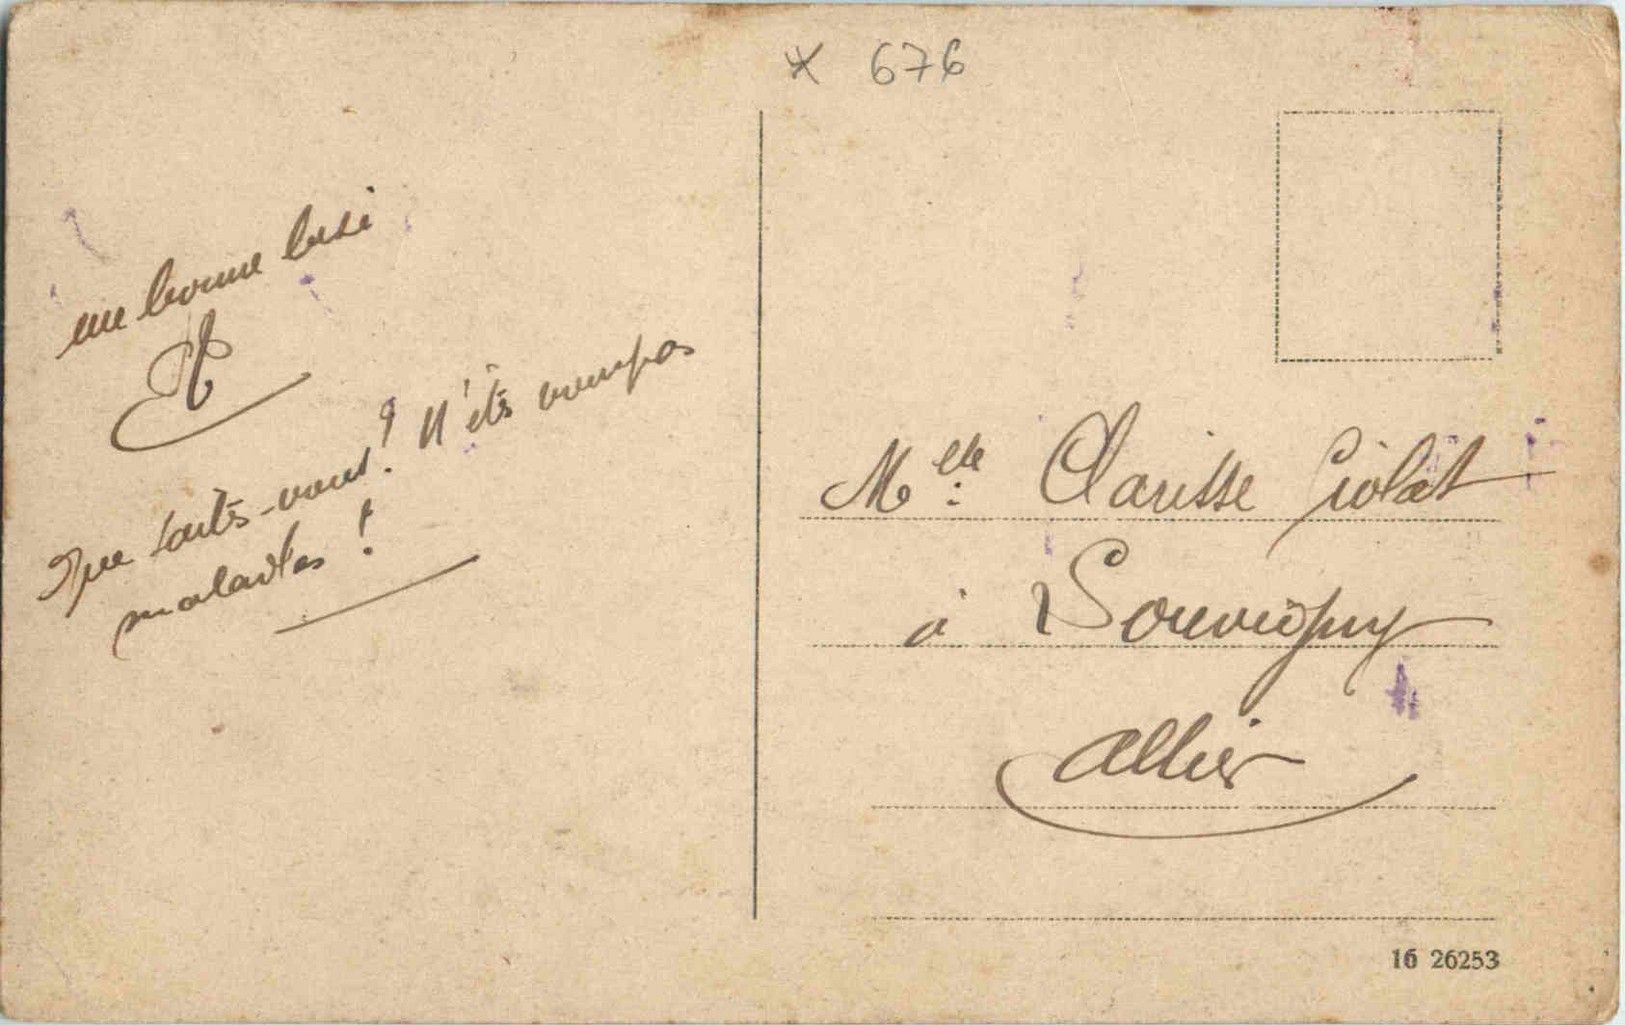 * 676
une bonne bise
Que faites-vous? N'êtes vous pas
malades!
Mlle: Clarisse
à Souvigny
Allier
16 26253